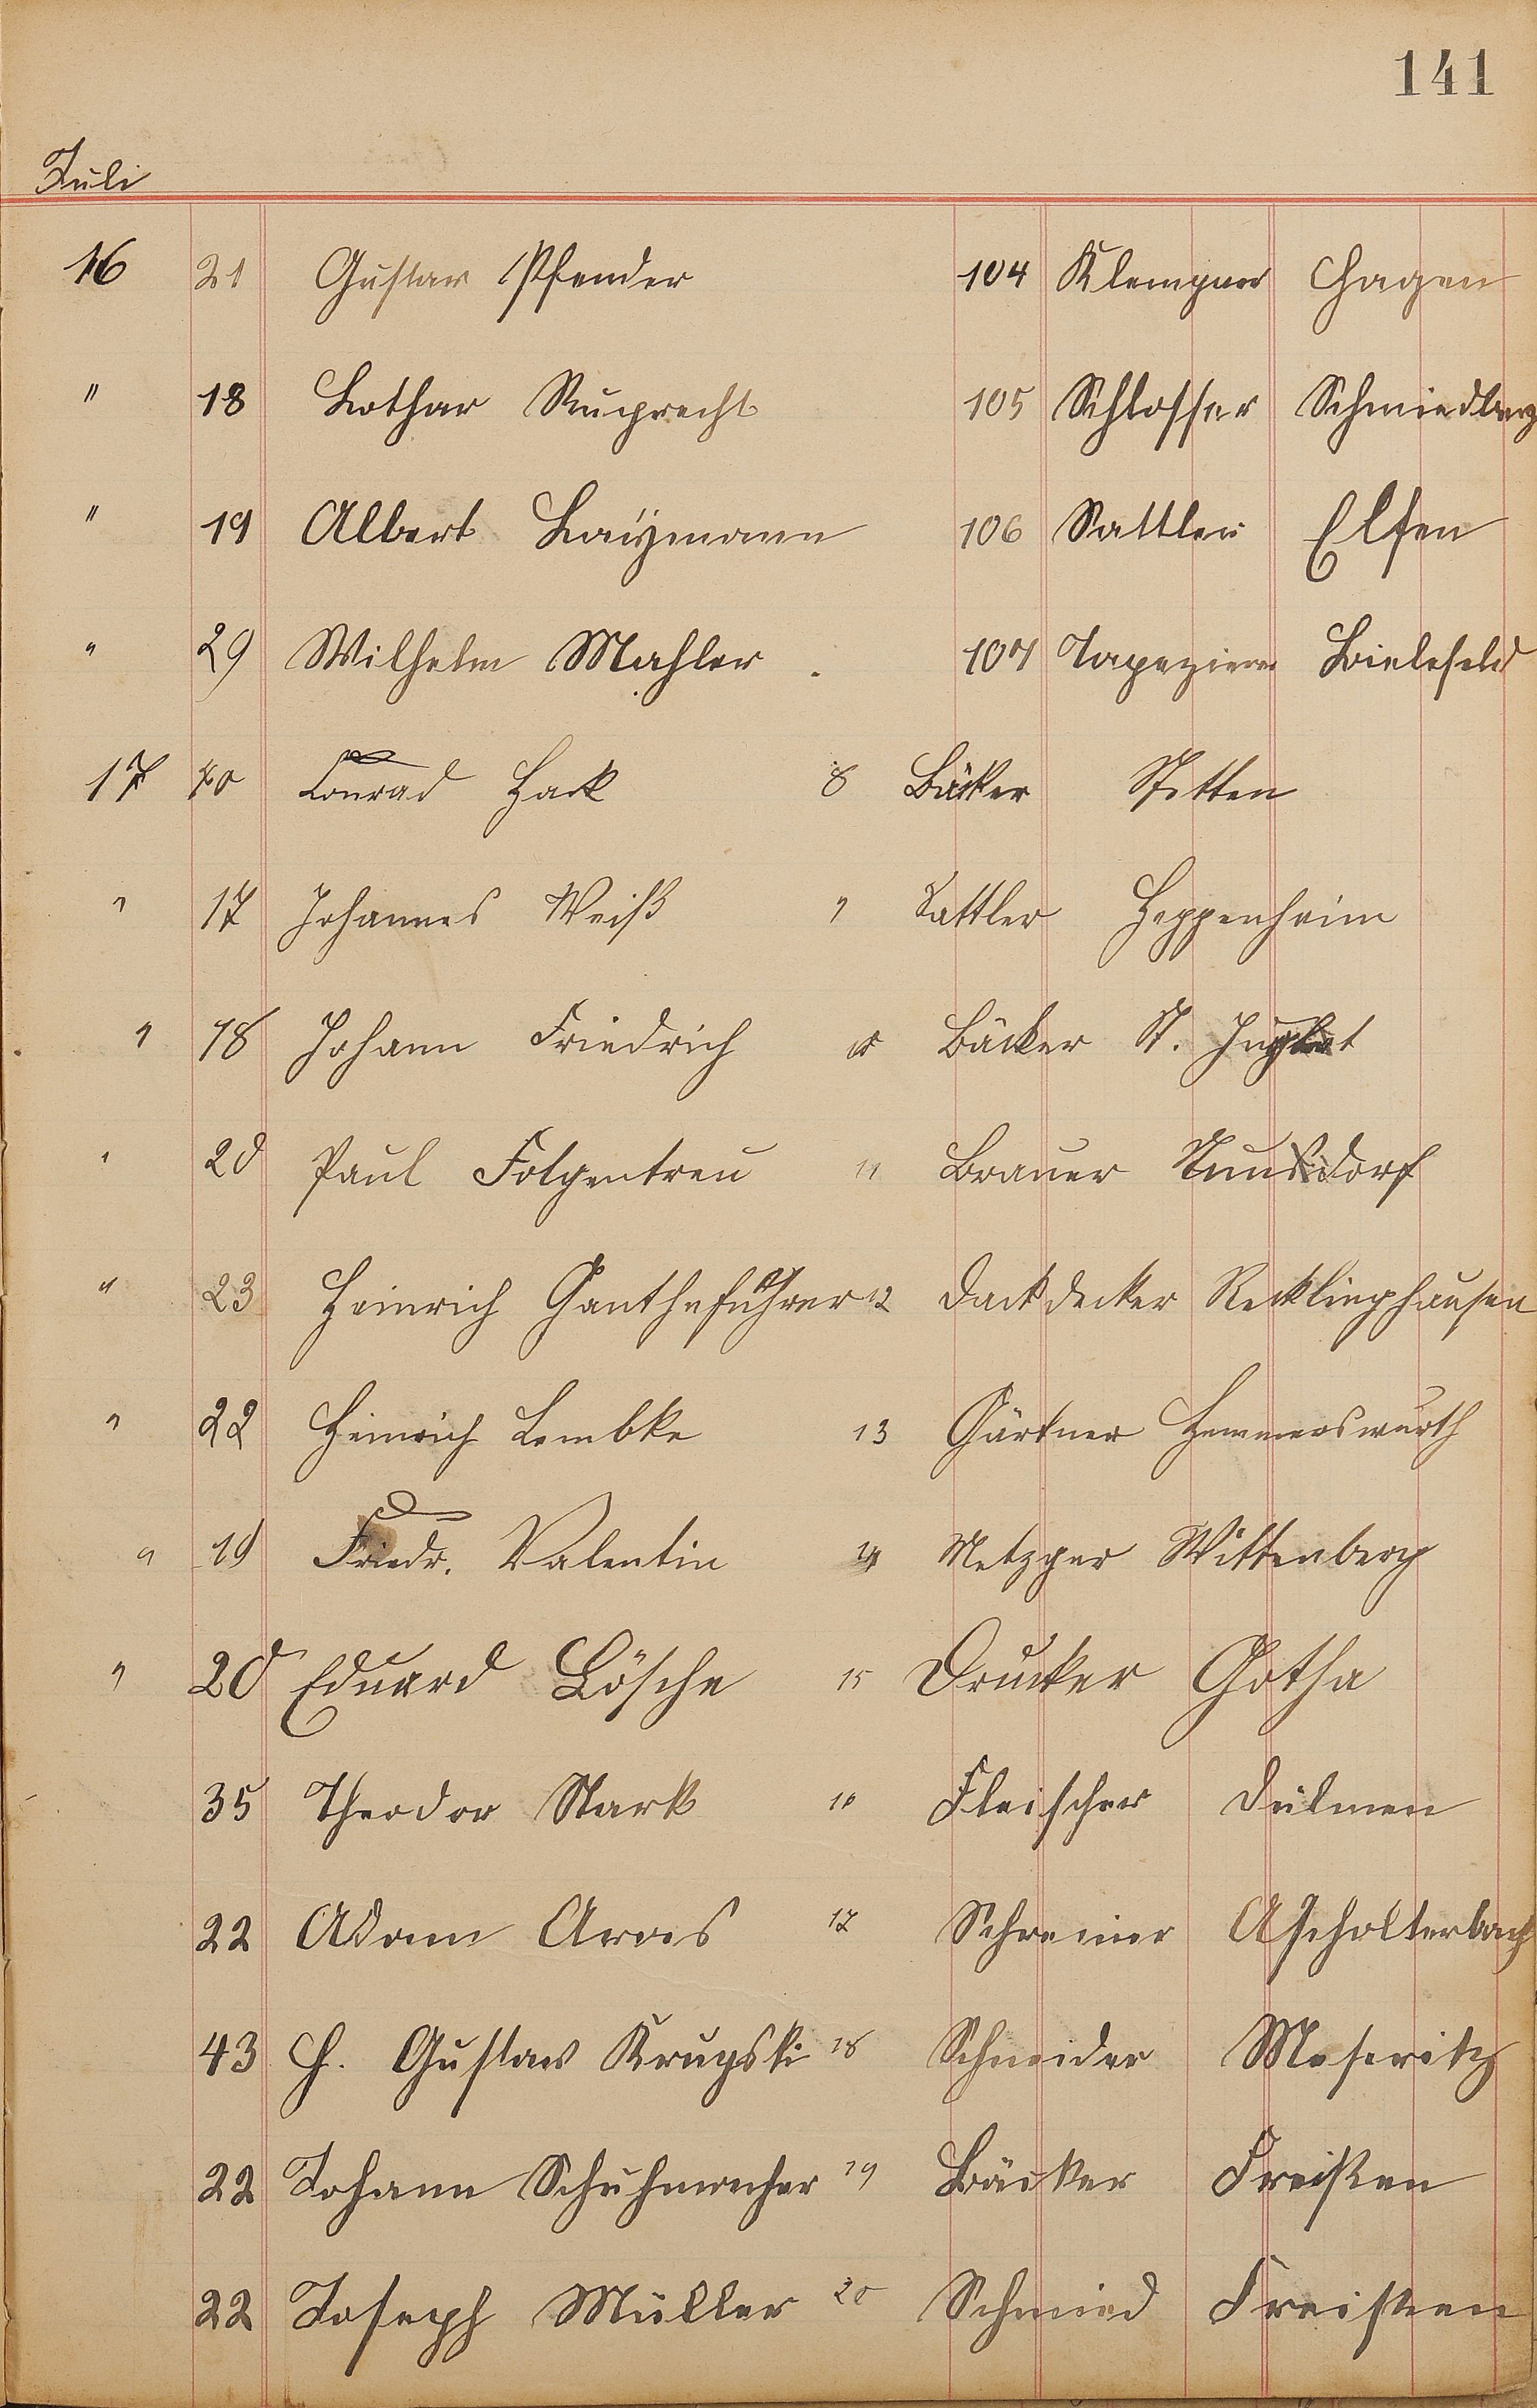 141
Juli
16 21 Gustav Pfender 104 Klempner Hagen
" 18 Lothar Ruprecht 105 Schlosser Schmiedberg
" 19 Albert Laÿmann 106 Sattler Elsen
" 29 Wilhelm Mahler 107 Tapezierer Bielefeld
17 20 Conrad Hack 8 Bäcker Stetten
" 17 Johannes Weiß 9 Sattler Heppenheim
" 18 Johann Friedrich 10 Bäcker St. Ingbert
" 20 Paul Folgentreu 11 Brauer Nunsdorf
" 23 Heinrich Ganthefuhrer 12 Dackdecker Recklinghausen
" 22 Heinrich Lembke 13 Gärtner Hemmerswurth
" 19 Friedr. Valentin 14 Metzger Wittenberg
" 20 Eduard Lösche 15 Drucker Gotha
35 Theodor Stark 16 Fleischer Dülmen
22 Adam Aras 17 Schreiner Affholterbach
43 H. Gustav Krugski 18 Schneider Meseritz
22 Johann Schuhmacher 19 Bäcker Freisen
22 Joseph Müller 20 Schmied Freisen